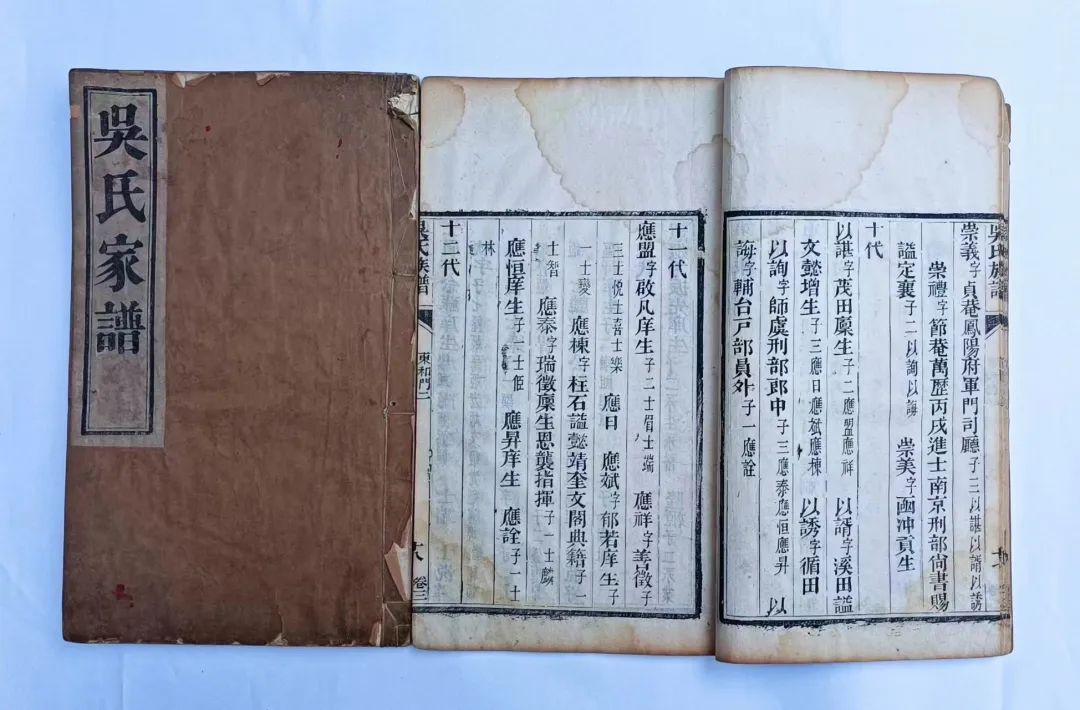 吳氏家譜
吳氏族譜
崇義字貞菴鳳陽府軍門司廳子三以諶以諝以誘
崇禮字節菴萬歷丙戌進士南京刑部尚書賜
諡定襄子二以詢以誨 崇美字凾冲貢生
十代
以諶字茂田廩生子二應盟應祥 以諝字溪田諡
文懿增生子三應日應斌應棟 以誘字循田
以詢字師虞刑部郎中子三應泰應恒應昇 以
誨字輔台戸部員外子一應詮
十一代
應盟字啟凡庠生子二士眉士端 應祥字善徵子
三士悅士喜士樂 應日 應斌字郁若庠生子
一士夔 應棟字柱石諡懿靖奎文閣典籍子一
士智 應泰字瑞徵廩生恩襲指揮子一士麟
應恒庠生子一士佢 應昇庠生 應詮子一士
林
十二代
吳氏族譜 東和門二 卷三